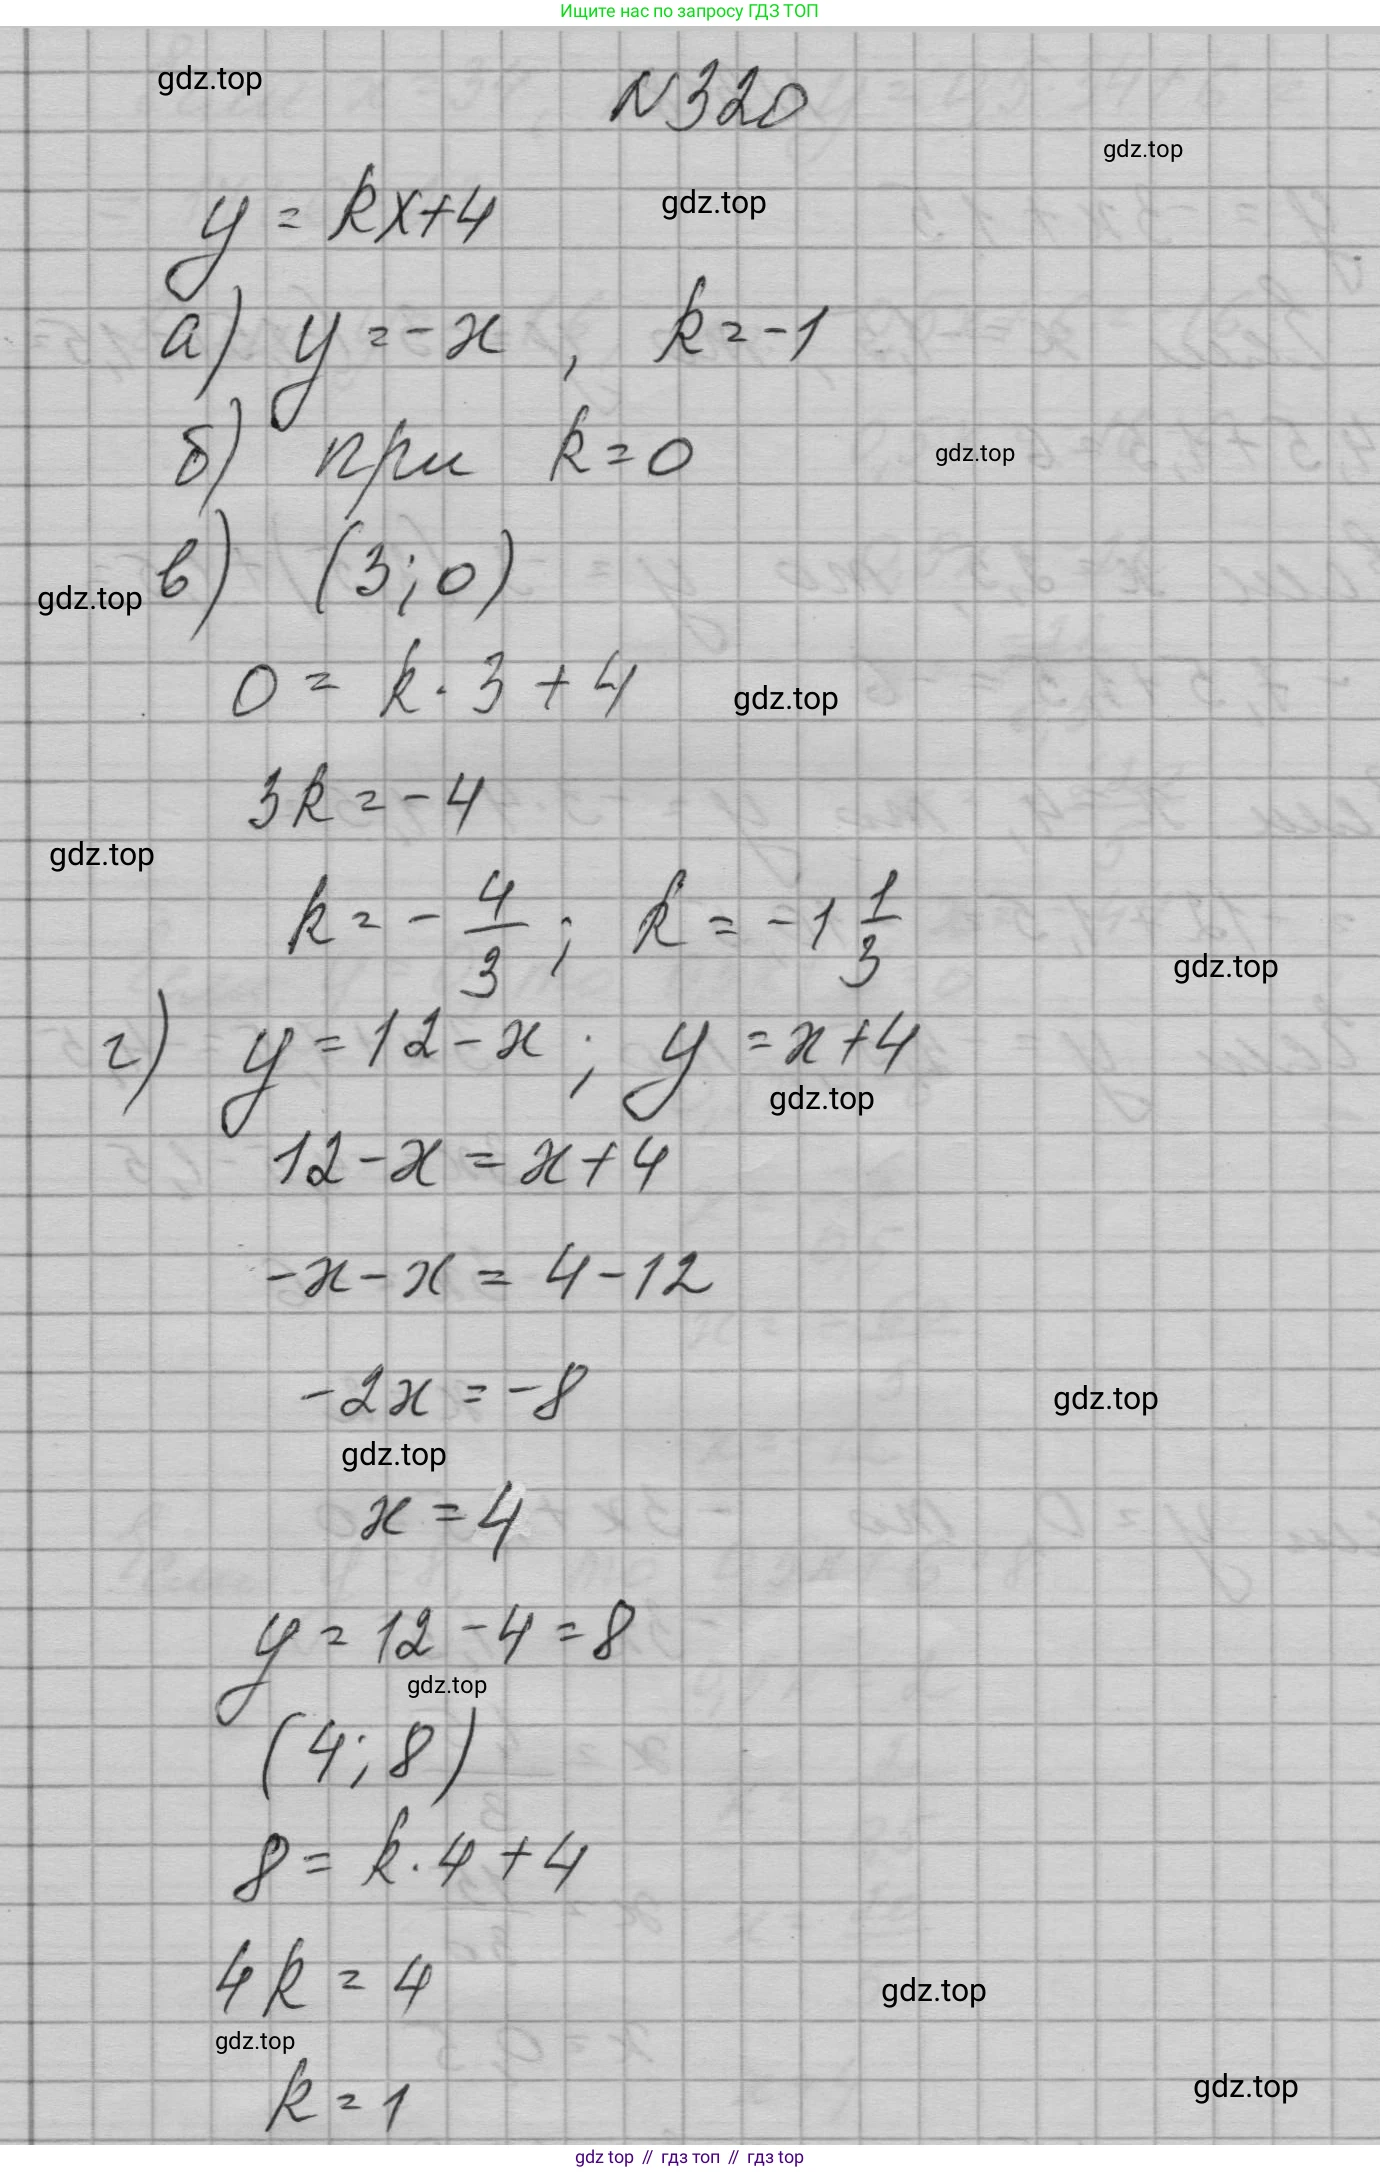 Ищите нас по запросу ГДЗ ТОП
gdz.top
N320
gdz.top
y = kx+4
gdz.top
а) y = -x , k = -1
б) при k = 0
gdz.top
в) (3; 0)
gdz.top
0 = k · 3 + 4
gdz.top
3k = -4
gdz.top
k = - 4/3 ; k = -1 1/3
gdz.top
г) y = 12 - x ; y = x + 4
gdz.top
12 - x = x + 4
-x - x = 4 - 12
-2x = -8
gdz.top
gdz.top
x = 4
y = 12 - 4 = 8
gdz.top
(4; 8)
8 = k · 4 + 4
4k = 4
gdz.top
gdz.top
k = 1
gdz.top
gdz top // гдз топ // гдз top